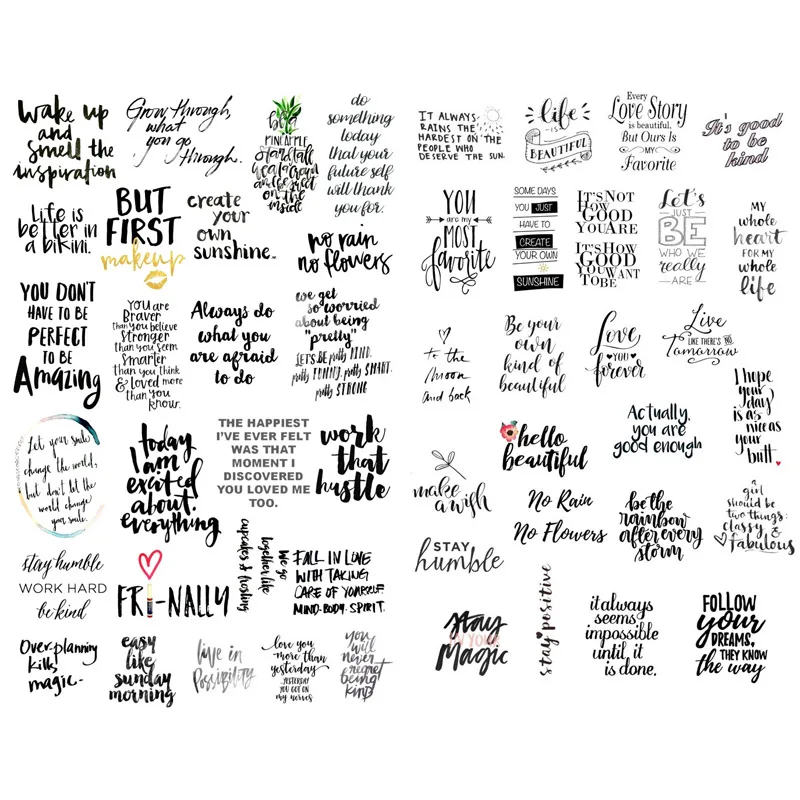 wake up
and
smell the
inspiration
Grow through,
what
you go
through.
be a
PINEAPPLE
stand tall
wear a crown
and be sweet
on the
inside
do
something
today
that your
future self
will thank
you for.
Life is
better in
a bikini.
BUT
FIRST
makeup
create
your
own
sunshine.
no rain
no flowers
YOU DON'T
HAVE TO BE
PERFECT
TO BE
Amazing
You are
Braver
than you believe
Stronger
than you seem
Smarter
than you think
& Loved more
than you
know.
Always do
what you
are afraid
to do
we get
so worried
about being
"pretty"
LET'S BE pretty KIND.
pretty FUNNY. pretty SMART.
pretty STRONG
Let your smile
change the world,
but don't let the
world change
your smile.
today
I am
excited
about
everything
THE HAPPIEST
I'VE EVER FELT
WAS THAT
MOMENT I
DISCOVERED
YOU LOVED ME
TOO.
work
that
hustle
stay humble
WORK HARD
be kind
FRI-NALLY
we go
together like
cupcakes & frosting
FALL IN LOVE
WITH TAKING
CARE OF YOURSELF
MIND. BODY. SPIRIT.
Over-planning
kills
magic-
easy
like
sunday
morning
live in
Possibility
love you
more than
yesterday
YESTERDAY
YOU GOT ON
my nerves
you
will
never
regret
being
kind
IT ALWAYS
RAINS THE
HARDEST ON THE
PEOPLE WHO
DESERVE THE SUN.
life
IS
BEAUTIFUL
Every
Love Story
is beautiful,
But Ours Is
MY
Favorite
It's good
to be
kind
YOU
are my
MOST
favorite
SOME DAYS
YOU JUST
HAVE TO
CREATE
YOUR OWN
SUNSHINE
IT'S NOT
HOW
GOOD
YOU ARE
IT'S HOW
GOOD
YOU WANT
TO BE
Let's
JUST
BE
WHO WE
really
ARE
MY
whole
heart
FOR MY
whole
life
to the
moon
and back
Be your
own
kind of
beautiful
Love
YOU
forever
Live
LIKE THERE'S NO
Tomorrow
I hope
your
day
is as
nice as
your
butt.
make
a wish
hello
beautiful
Actually,
you are
good enough
No Rain
No Flowers
be the
rainbow
after every
storm
a
girl
should be
two things:
classy &
fabulous
STAY
humble
stay
IN YOUR
Magic
stay positive
it always
seems
impossible
until it
is done.
FOLLOW
your
DREAMS,
THEY KNOW
the way